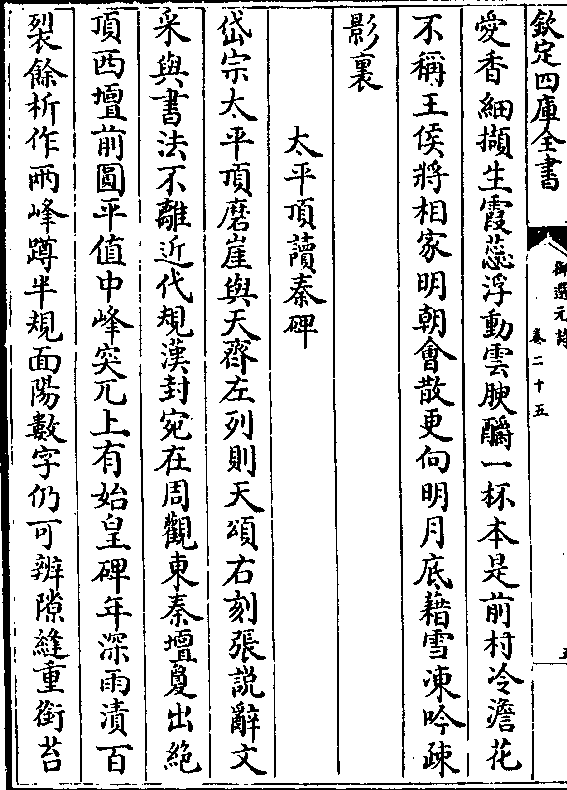 欽定四庫全書
御選元詩
卷二十五
五
愛香細擷生霞蕊浮動雲腴釂一杯本是前村冷澹花
不稱王侯將相家明朝會散更何明月底藉雪凍吟疎
影裏
太平頂讀秦碑
岱宗太平頂磨崖與天齊左列則天頌右刻張説辭文
采與書法不離近代規漢封宛在周觀東秦壇敻出絶
頂西壇前圓平值中峰突兀上有始皇碑年深雨漬百
裂餘析作兩峰蹲半規面陽數字仍可辨隙縫重銜苔